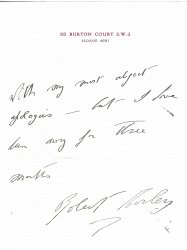 25 BURTON COURT S.W.3
SLOANE 8881
With my most abject
apologies — but I have
been away for three
months
Robert Morley